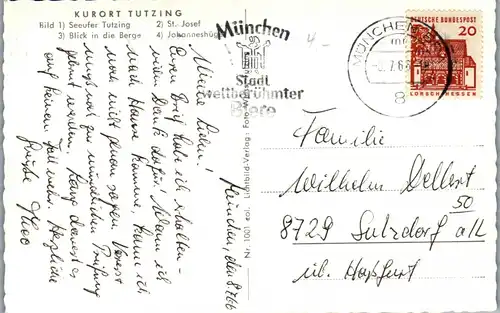 KURORT TUTZING
Bild 1) Seeufer Tutzing 2) St. Josef
3) Blick in die Berge 4) Johanneshüg
München
Stadt
weltberühmter
Biere
MÜNCHEN
8
DEUTSCHE BUNDESPOST
20
LORSCH/HESSEN
München, den 8.7.66
Meine Lieben!
Euren Brief habe ich erhalten -
vielen Dank dafür. Wann ich
nach Hause komme, kann ich
noch nicht genau sagen.
muß noch zur mündlichen Prüfung
auf keinen Fall mehr. Herzliche
Grüße
Nr. 1001 col. Lichtbild-Verlag: Foto
Familie
Wilhelm Dellert
8729 Sulzdorf
50
üb. Haßfurt